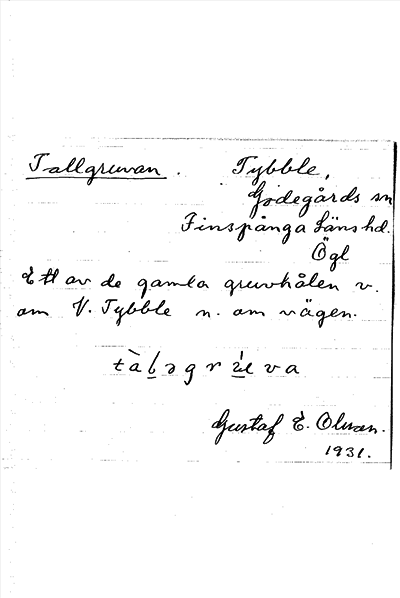 Tallgruvan. Tybble,
Godegårds sn
Finspånga läns hd.
Ögl
Ett av de gamla gruvhålen v.
om V. Tybble n. om vägen.
Gustaf E. Olsson.
1931.